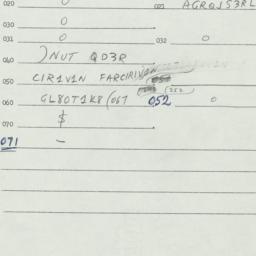 020 0 021 AGRQJS3RL
030 0
031 0 032 0
040 )NUT QD3R
050 CIR1V1N FARCIRIVAN
252
060 GL8OT1K8 (067 052 0
070 $
071 -